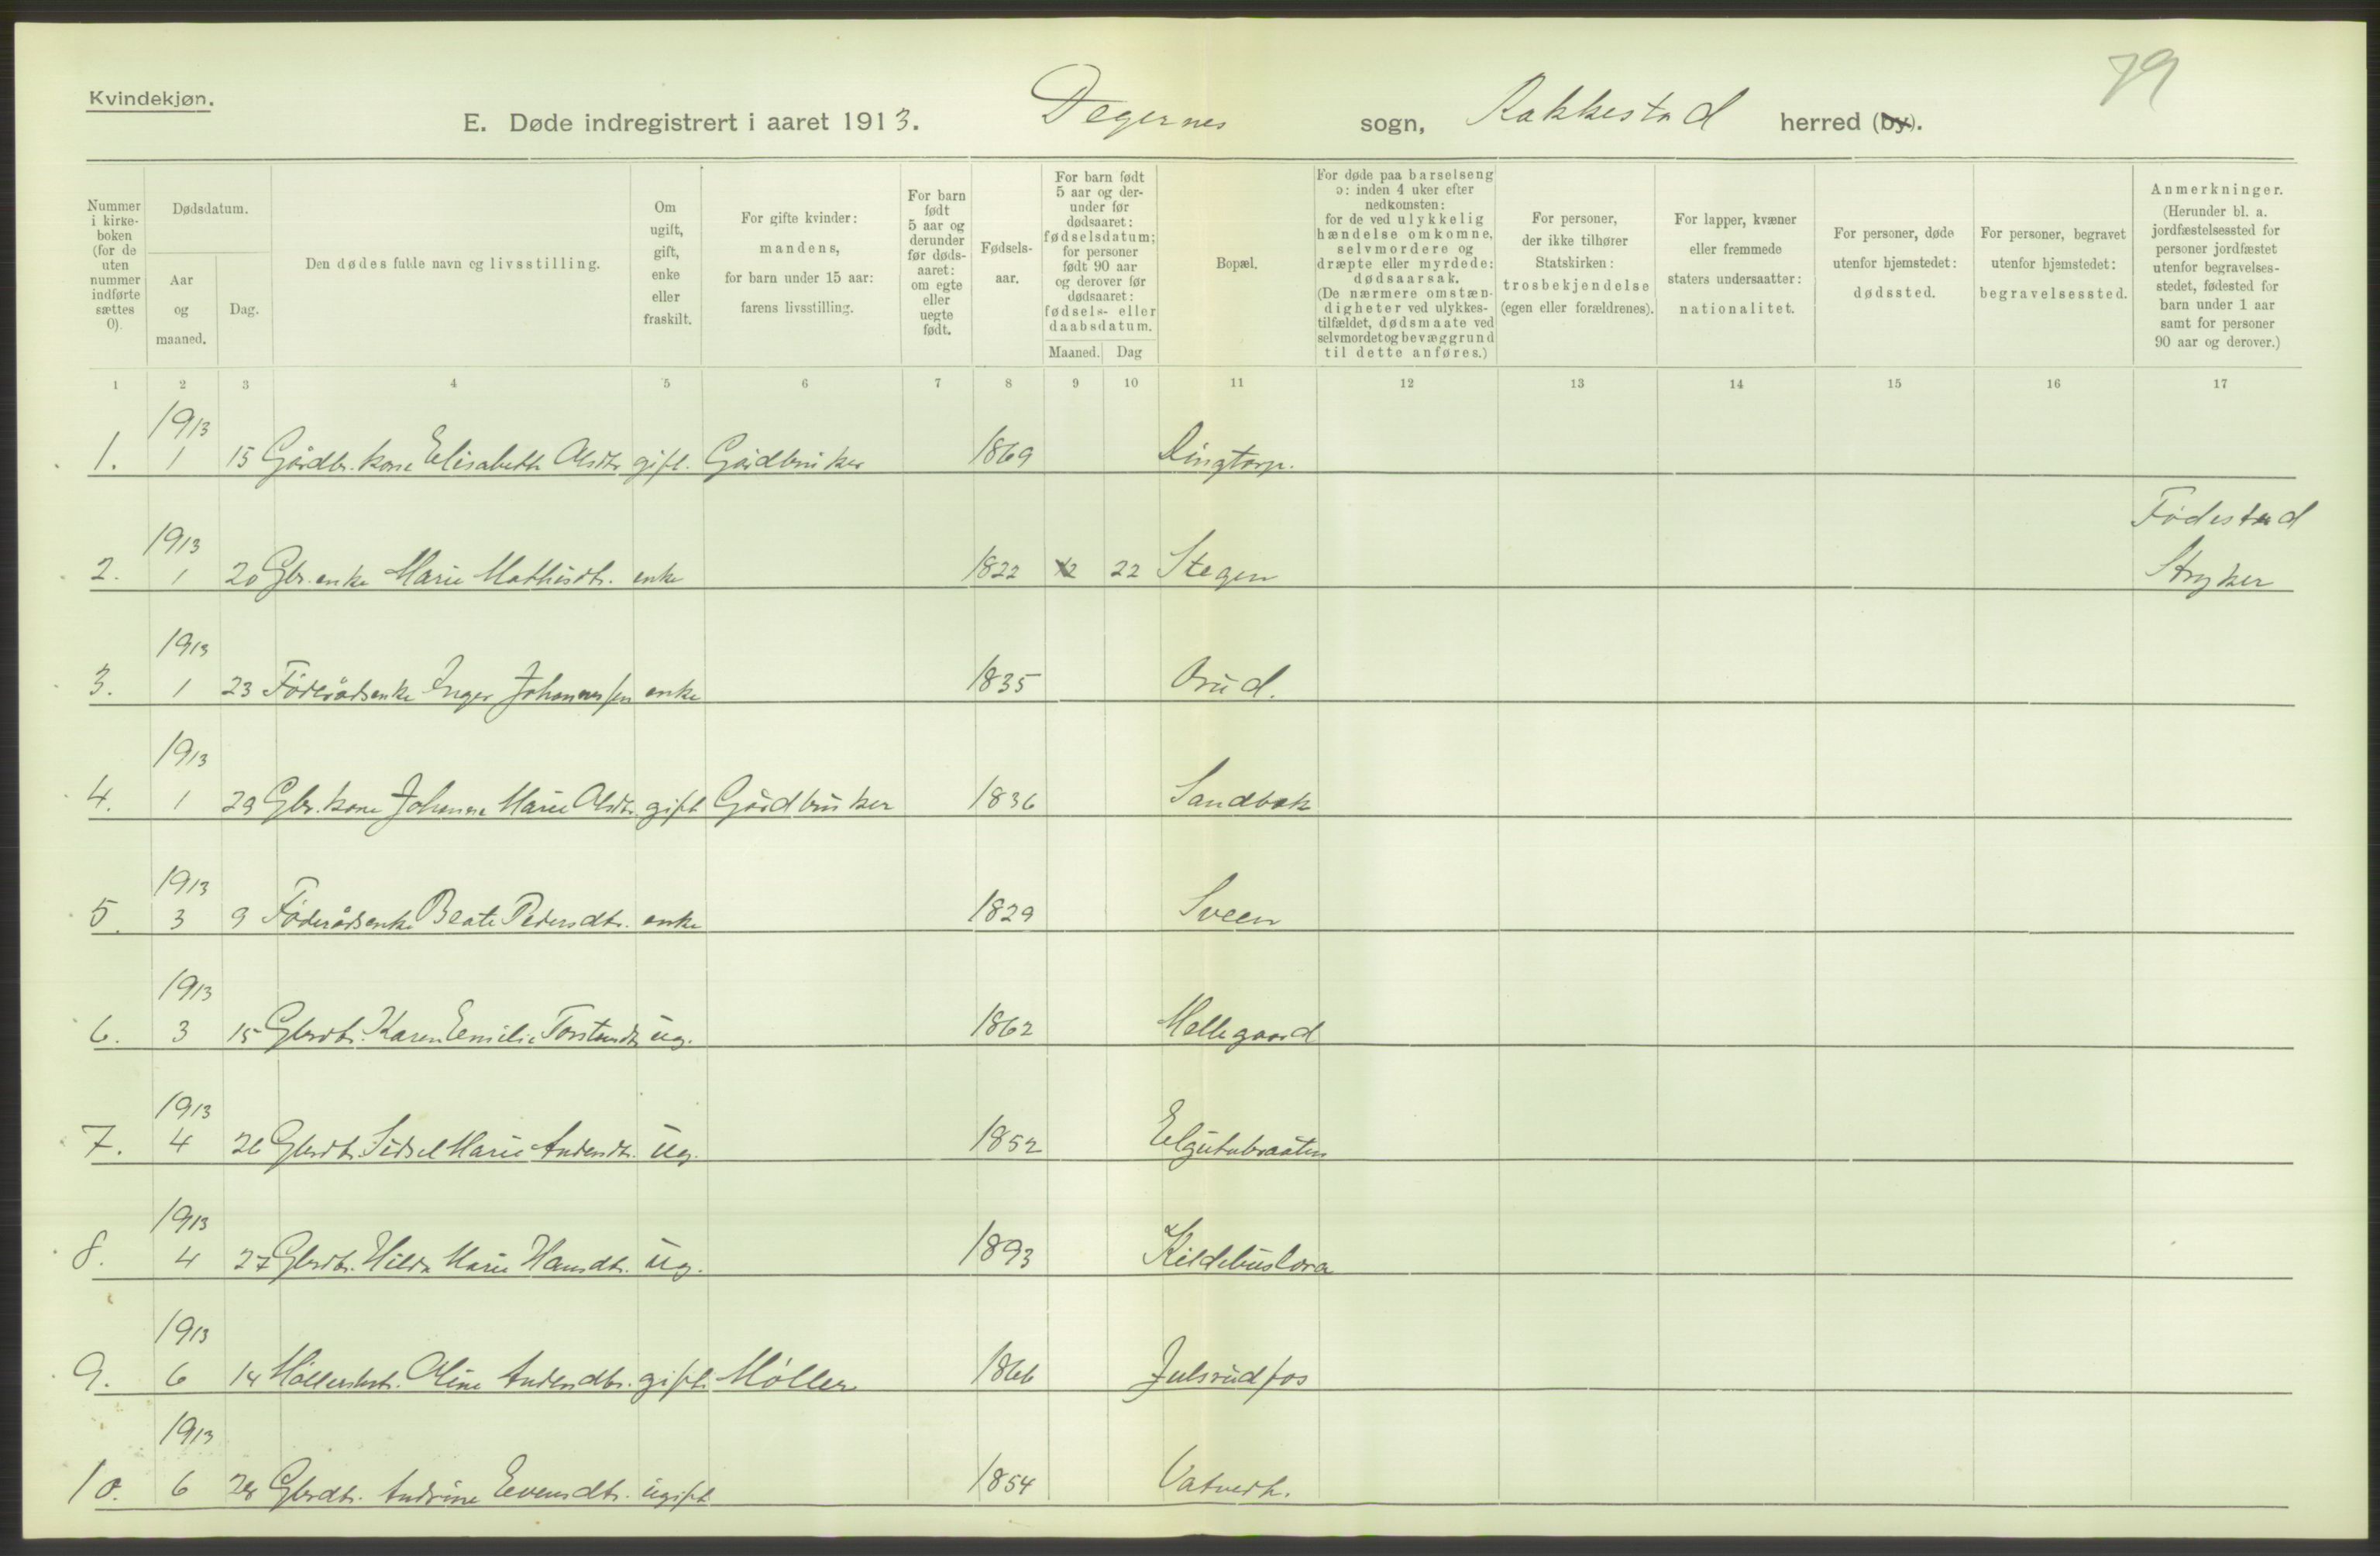 79
Kvindekjøn.
E. Døde indregistrert i aaret 1913. Degernes sogn, Rakkestad herred (by).
Nummer i kirkeboken (for de uten nummer indførte sættes 0).
Dødsdatum.
Aar og maaned.
Dag.
Den dødes fulde navn og livsstilling.
Om ugift, gift, enke eller fraskilt.
For gifte kvinder: mandens, for barn under 15 aar: farens livsstilling.
For barn født 5 aar og derunder før dødsaaret: om egte eller uegte født.
Fødselsaar.
For barn født 5 aar og derunder før dødsaaret: fødselsdatum; for personer født 90 aar og derover før dødsaaret: fødsels- eller daabsdatum.
Maaned. Dag
Bopæl.
For døde paa barselseng ɔ: inden 4 uker efter nedkomsten: for de ved ulykkelig hændelse omkomne, selvmordere og dræpte eller myrdede: dødsaarsak. (De nærmere omstændigheter ved ulykkestilfældet, dødsmaate ved selvmordet og bevæggrund til dette anføres.)
For personer, der ikke tilhører Statskirken: trosbekjendelse (egen eller forældrenes).
For lapper, kvæner eller fremmede staters undersaatter: nationalitet.
For personer, døde utenfor hjemstedet: dødssted.
For personer, begravet utenfor hjemstedet: begravelsessted.
Anmerkninger. (Herunder bl. a. jordfæstelsessted for personer jordfæstet utenfor begravelsesstedet, fødested for barn under 1 aar samt for personer 90 aar og derover.)
1 2 3 4 5 6 7 8 9 10 11 12 13 14 15 16 17
1913
1. 1 15 Gårdbr. kone Elisabeth Olsdtr. gift. Gårdbruker 1869 Lingtorp.
1913 Fødested
2. 1 20 Gbr. enke Marie Mathisdtr. enke 1822 12 22 Stegen Stryker
1913
3. 1 23 Föderådsenke Inger Johannessen enke 1835 Brud.
1913
4. 1 29 Gbr. kone Johanne Marie Olsdtr. gift Gårdbruker 1836 Sandbæk
1913
5. 3 9 Föderådsenke Beate Pedersdtr. enke 1829 Sveen
1913
6. 3 15 Gbrdtr. Karen Emilie Torstensdtr ug. 1862 Mellegaard
1913
7. 4 26 Gbrdtr. Sidsel Marie Andersdtr. ug. 1852 Elgutubraaten
1913
8. 4 27 Gbrdtr. Hilda Marie Hansdtr. ug. 1893
1913
9. 6 14 Oline Andersdtr. gift. Møller 1866 Julsrudfos
1913
10. 6 28 Gbrdtr. Andrine Evensdtr. ugift 1854 Vatvedt.